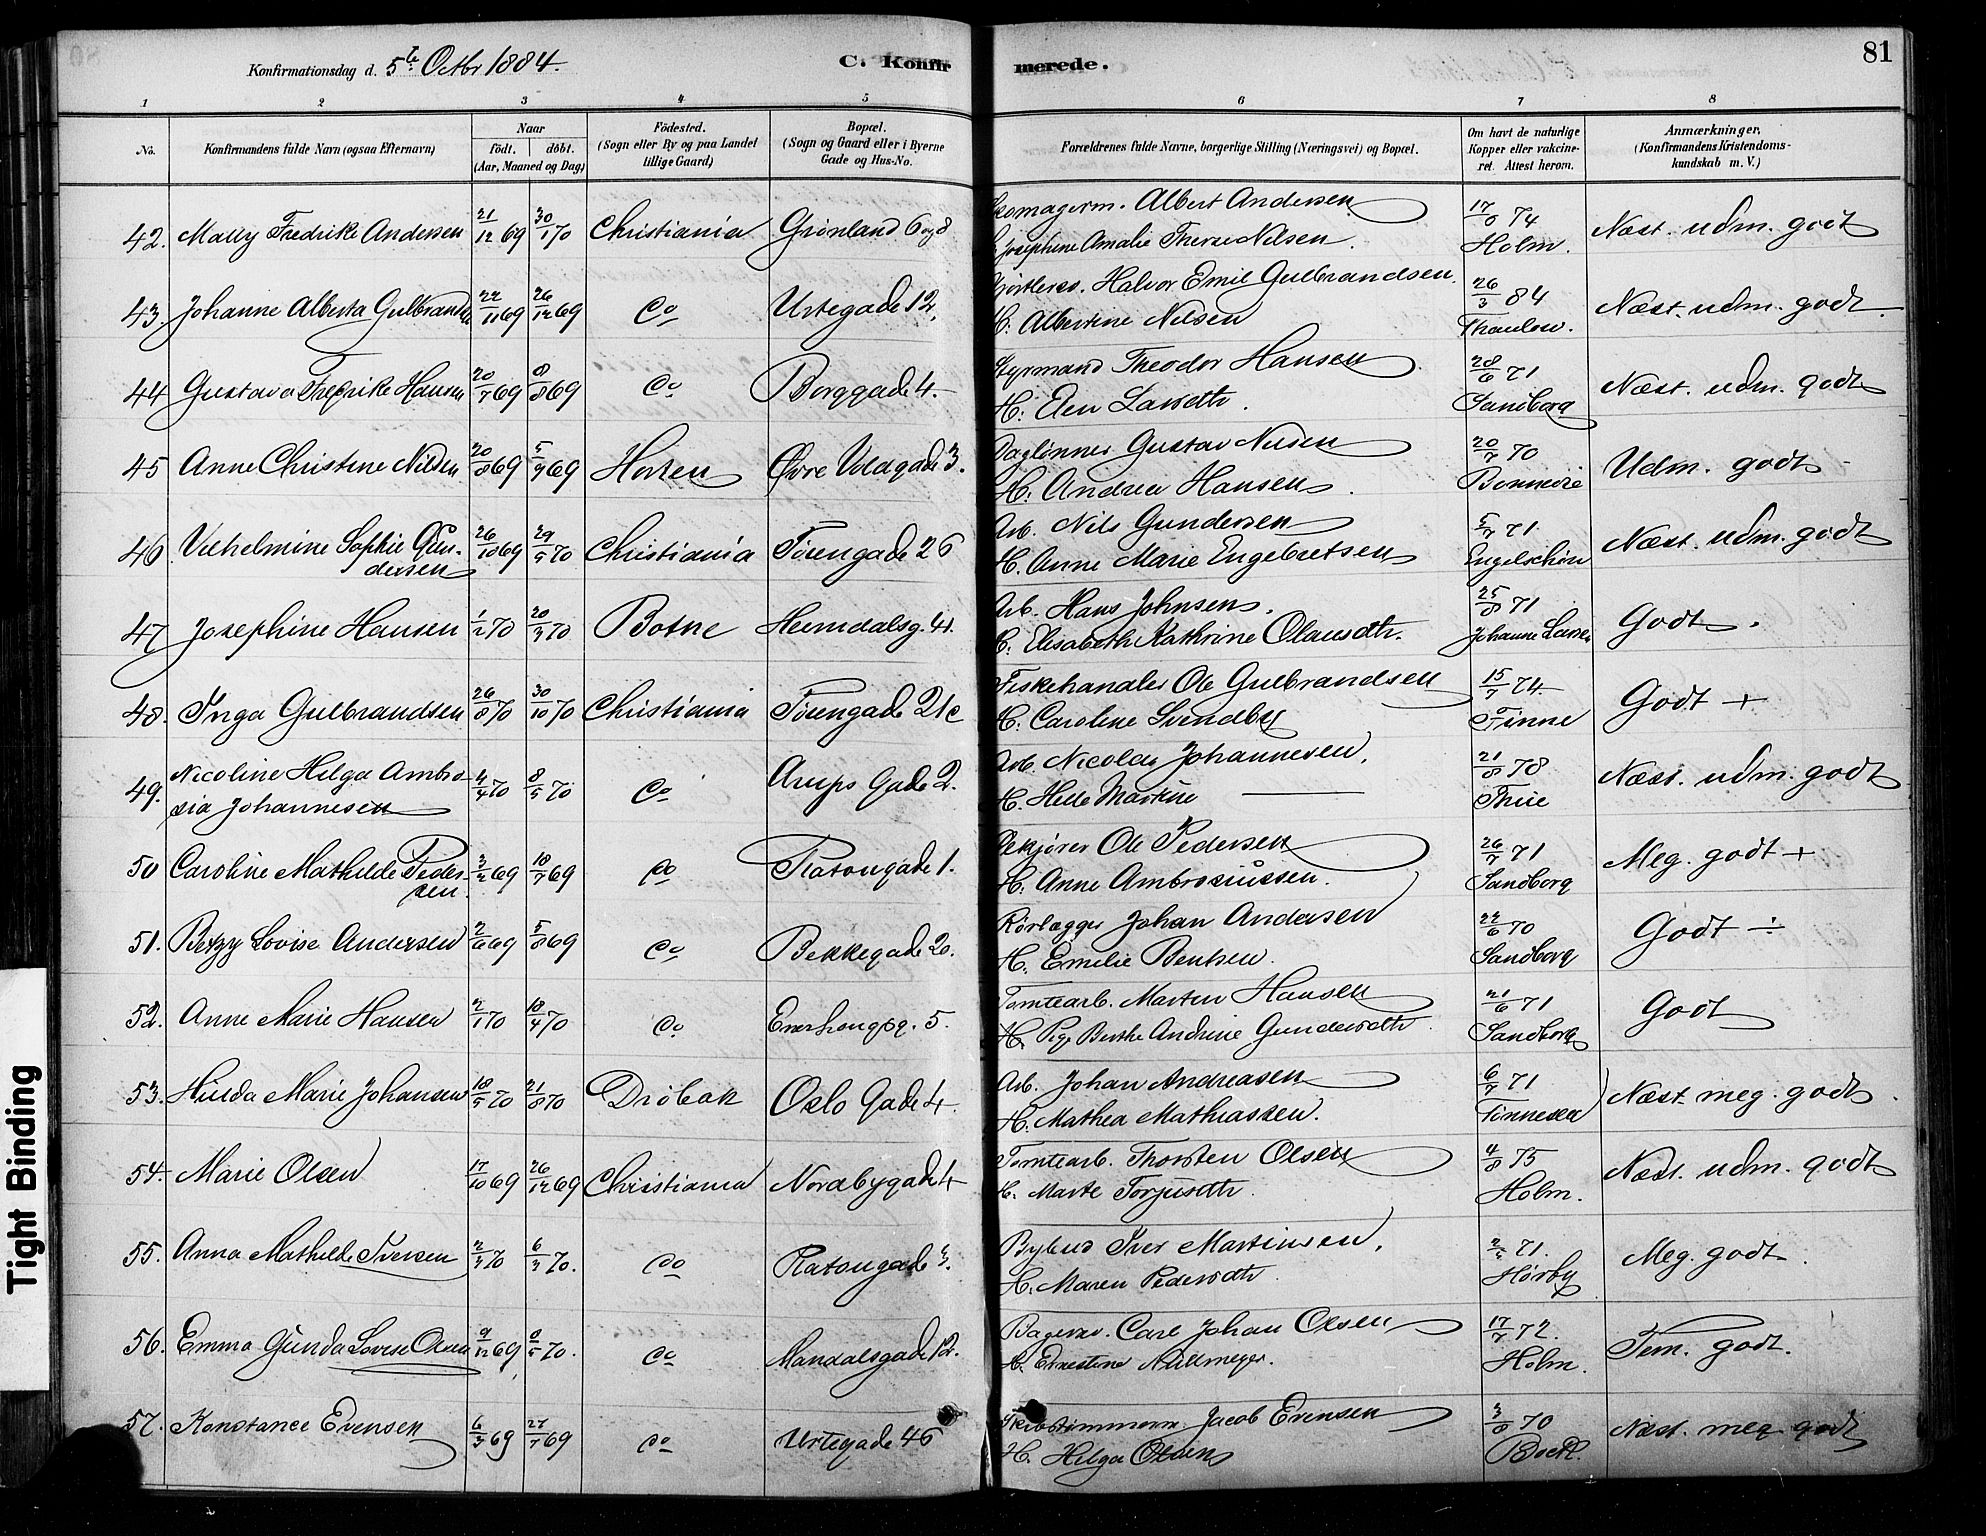 Konfirmationsdag d. 5te Octbr 1884.
C. Konfirmerede.
81
1 2 3 4 5 6 7 8
No.
Konfirmandens fulde Navn (ogsaa Efternavn)
Naar
født. døbt.
(Aar, Maaned og Dag)
Fødested.
(Sogn eller By og paa Landet
tillige Gaard)
Bopæl.
(Sogn og Gaard eller i Byerne
Gade og Hus-No.
Forældrenes fulde Navne, borgerlige Stilling (Næringsvei) og Bopæl.
Om havt de naturlige
Kopper eller vakcine-
ret. Attest herom.
Anmærkninger.
(Konfirmandens Kristendoms-
kundskab m. V.)
42. Mally Fredrikke Andersen 21/12 69 30/1 70 Christiania Grønland 6 og 8 Skomagerm. Albert Andersen 17/8 74 Næst. udm. godt
Josephine Amalie Therse Nilsen. Holm.
43. Johanne Alberta Gulbrandsen 22/11 69 26/12 69 Co Urtegade 12, Halvor Emil Gulbrandsen. 26/3 84 Næst. udm. godt
H. Albertine Nilsen Thaulow.
44 Gustava Fredrike Hansen 20/7 69 8/8 69 Co Borggade 4. Styrmand Theodor Hansen 28/6 71 Næst. udm. godt
H. Elen Larsdtr. Sandborg
45 Anne Christine Nilsen 20/8 69 5/9 69 Horten Øvre Voldgade 3. Daglønner Gustav Nilsen 20/7 70 Udm. godt
H. Andrea Hansen. Bonnevie
46 Vilhelmine Sophie Gun- 26/10 69 29/5 70 Christiania Tøiengade 26 Arb. Nils Gundersen 5/7 71 Næst. udm. godt
dersen H. Anne Marie Engebretsen Engelschiøn
47 Josephine Hansen 1/2 70 20/3 70 Botne Heimdalsg. 41. Arb. Hans Johnsen. 25/8 71 Godt.
H. Elisabeth Kathrine Olausdtr. Johanne Larsen
48. Inga Gulbrandsen 26/8 70 30/10 70 Christiania Tøiengade 21c Fiskehandler Ole Gulbrandsen 15/7 74 Godt +
H. Caroline Svendby Finne
49. Nicoline Helga Ambro- 4/4 70 8/5 70 Co Arups Gade 2. Arb. Nicolay Johannesen, 21/8 78 Næst. udm. godt
sia Johannesen H. Helle Martine — Thue
50 Caroline Mathilde Peder- 3/2 69 18/7 69 Co Platougade 1. Ole Pedersen 26/7 71 Meg. godt +
sen. H. Anne Ambrosiussen. Sandborg
51. Betzy Lovise Andersen 2/6 69 5/8 69 Co Bekkegade 20. Rørlægger Johan Andersen 22/6 70 Godt ÷
H. Emilie Bentsen. Sandborg
52. Anne Marie Hansen 2/1 70 18/4 70 Co Enerhougsg. 5. Tomtearb. Morten Hansen 21/6 71 Godt
H. Pige Berthe Andrine Gundersdtr Sandborg
53. Hulda Marie Johansen 18/5 70 21/8 70 Drøbak Oslo Gade 4. Arb. Johan Andreasen 6/7 71 Næst meg. godt.
H. Mathea Mathiassen. Tønnesen
54. Marie Olsen 17/10 69 26/12 69 Christiania Nordbygade 4 Tomtearb. Thorsten Olsen 4/8 75 Næst. udm. godt
H. Marte Torjusdtr. Holm.
55. Anna Mathilde Iversen 2/3 70 6/3 70. Co Platougade 3. Bybud Iver Martinsen, 71. Meg. godt.
H. Maren Pedersdtr. Hørbye
56. Emma Gunda Lovise Olsen 9/12 69, 8/5 70. Co Mandalsgade 12. Bagersv. Carl Johan Olsen 17/7 72. Tem. godt.
H. Ernestine Nullmeyer. Holm.
57. Konstance Evensen 6/3 69 27/7 69 Co Urtegade 46 Skibstømmerm. Jacob Evensen 3/8 70 Næst. meg godt
H. Helga Olsen Boeck.
Tight Binding